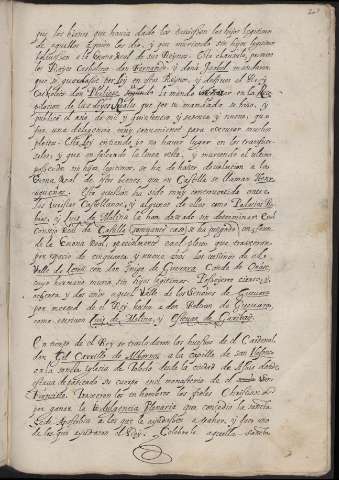 que los bienes que havia dado los heredassen los hijos legitimos
de aquellos a quien los dio, y que muriendo sin hijos legitimos
bolviessen a la Corona Real de sus Reynos. Esta clausula
los Reyes Catholicos don Fernando y doña Isabel mandaron
que se guardasse por ley en estos Reynos, y despues el Rey
Catholico don Philippe lo mandó en la Reco
pilacion de las leyes Reales que por su mandado se hizo, y
publicó el año de mil y quinientos y sesenta y nueve, que
fue una diligencia muy conveniente para escusar muchos
pleitos. Esta ley entienden no haver lugar en los transver
sales: y que en faltando la linea recta, y muriendo el ultimo
possedor sin hijos legitimos, se ha de hazer devolucion a la
Corona Real de los bienes, que en Castilla se llaman Henri
queños. Esta question ha sido muy controvertida entre
los Juristas Castellanos, y algunos de ellos como Palacios Ru
bios, y Luis de Molina la han dexado sin determinar. El
Consejo Real de Castilla se ha juzgado en favor
de la Corona Real, specialmente en el pleito que traxeron
por spacio de cinquenta y nueve años los vezinos de el
Valle de Leniz con don Iñigo de Guevara Conde de Oñate,
cuyo hermano murio sin hijos legitimos. Posseyeron ciento, y
ochenta, y dos años aquel Valle los Señores de Guevara
por merced de el Rey hecha a don Beltran de Guevara,
como escriven Luis de Molina, y Estevan de Garibay.
En tiempo de el Rey se trasladaron los huessos de el Cardenal
don Gil Carrillo de Albornoz a la capilla de san Ilefonso
en la sancta iglesia de Toledo desde la ciudad de Assis donde
estava depositado su cuerpo en el monasterio de el
Francisco. Traxeron los en hombros los fieles Christianos
por ganar la Indulgencia Plenaria que concedio la sancta
Sede Apostolica a los que la ayudassen a traher, y fue uno
de los que ayudaron el Rey. Celebrole aquella sancta